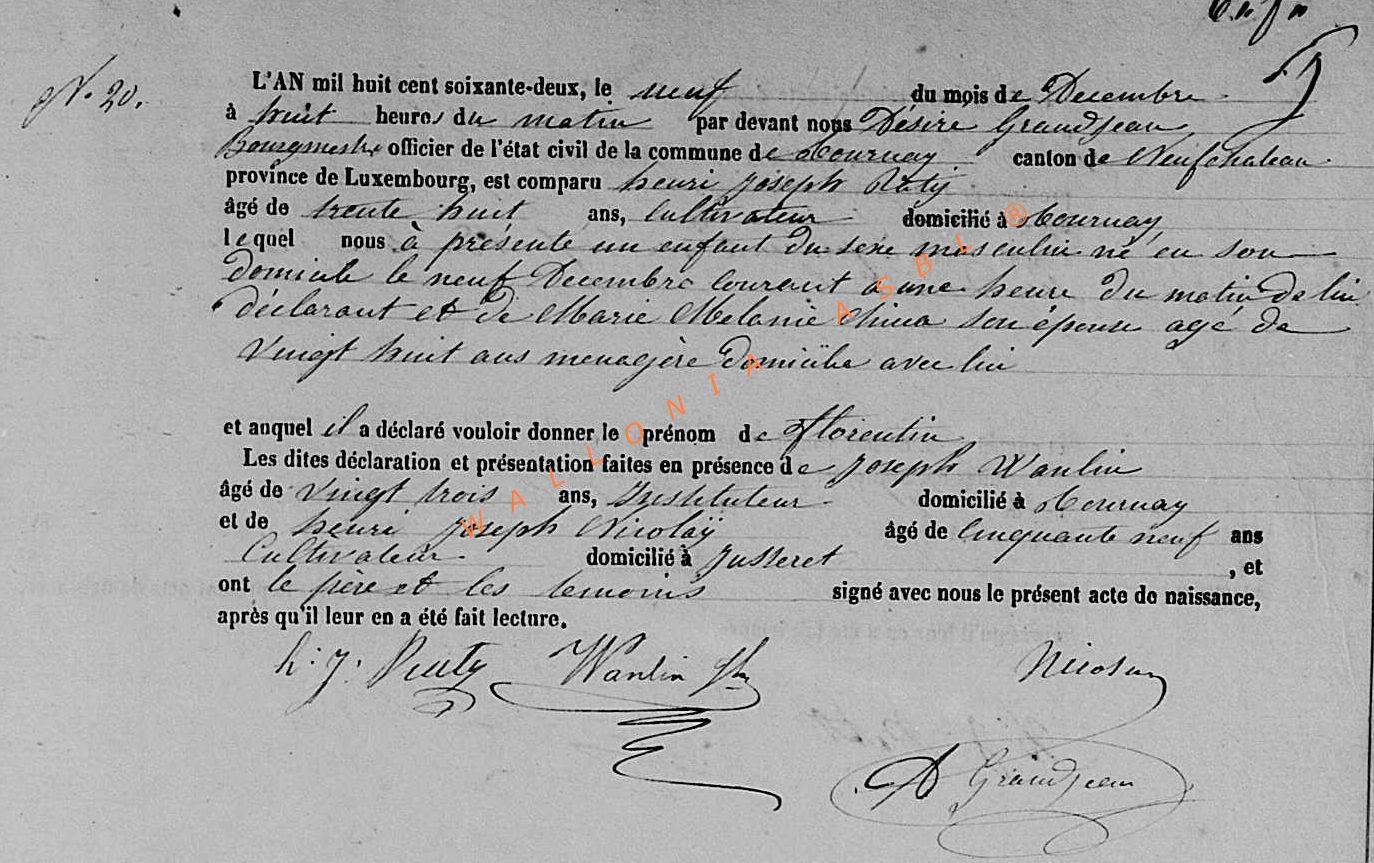 N. 20.
L'AN mil huit cent soixante-deux, le neuf du mois de Decembre
à huit heures du matin par devant nous Désiré Grandjean
Bourgmestre officier de l'état civil de la commune de Tournay canton de Neufchateau
province de Luxembourg, est comparu henri joseph
âgé de trente huit ans, Cultivateur domicilié à Tournay
lequel nous à présenté un enfant du sexe masculin né en son
domicile le neuf Decembre courant à une heure du matin de lui
déclarant et de Marie Melanie son épouse agé de
vingt huit ans menagère domiciliée avec lui
et auquel il a déclaré vouloir donner le prénom de Florentin
Les dites déclaration et présentation faites en présence de joseph Wanlin
âgé de vingt trois ans, Instituteur domicilié à Tournay
et de henri joseph Nicolaÿ âgé de Cinquante neuf ans
Cultivateur domicilié à Jusseret , et
ont le père et les temoins signé avec nous le présent acte de naissance,
après qu'il leur en a été fait lecture.
h: j. Wanlin
D Grandjean
WALLONIA ASBL ®